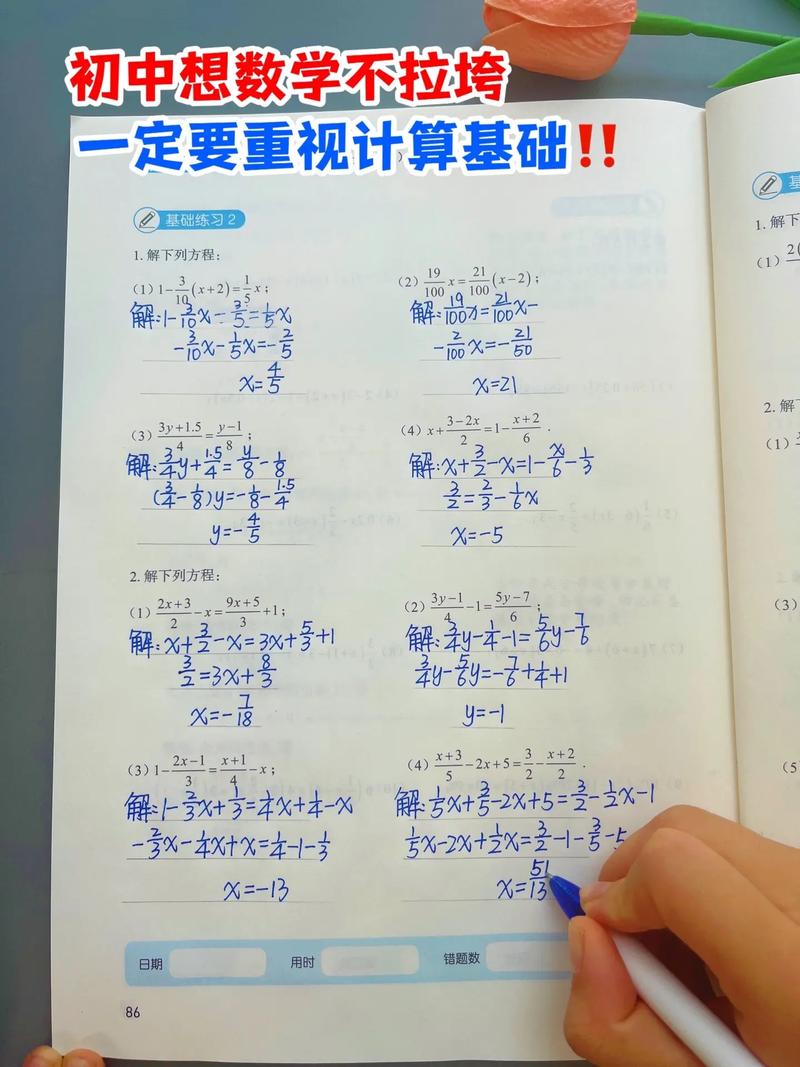 初中想数学不拉垮
一定要重视计算基础‼️
基础练习2
1. 解下列方程：
(1) 1-3/10(x+2)=1/5x；
解:1-3/10x-3/5=1/5x
-3/10x-1/5x=-2/5
x=4/5
(2) 19/100x=21/100(x-2)；
解:19/100x=21/100x-
-2/100x=-21/50
x=21
(3) (3y+1.5)/4=(y-1)/8；
解:3/4y+1.5/4=y/8-1/8
(3/4-1/8)y=-1/8-1.5/4
y=-4/5
(4) x+(3-2x)/2=1-(x+2)/6.
解:x+3/2-x=1-x/6-1/3
3/2=2/3-1/6x
x=-5
2. 解下列方程：
(1) (2x+3)/2-x=(9x+5)/3+1；
解:x+3/2-x=3x+5/3+1
3/2=3x+8/3
x=-7/18
(2) (3y-1)/4-1=(5y-7)/6；
解:3/4y-1/4-1=5/6y-7/6
3/4y-5/6y=-7/6+1/4+1
y=-1
(3) 1-(2x-1)/3=(x+1)/4-x；
解:1-2/3x+1/3=1/4x+1/4-x
-2/3x-1/4x+x=1/4-1-1/3
x=-13
(4) (x+3)/5-2x+5=3/2-(x+2)/2.
解:1/5x+3/5-2x+5=3/2-1/2x-1
1/5x-2x+1/2x=3/2-1-3/5-5
x=51/13
日期 用时 错题数
86
1. 解下
(1)
2. 解
(1)
(3)
(5)